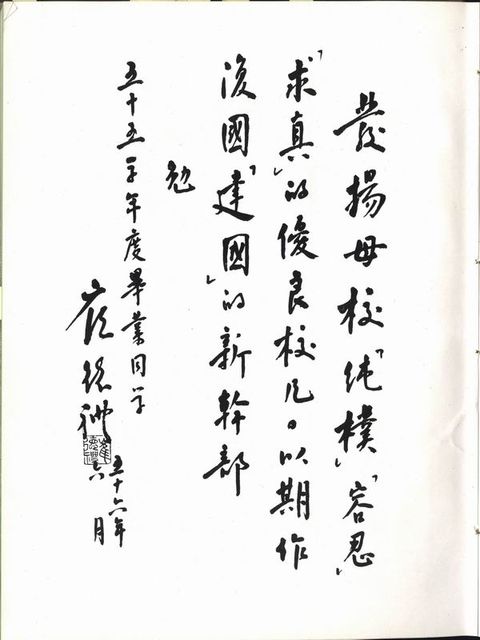 發揚母校「純樸」「容忍」
「求真」的優良校凡。以期作
復國「建國」的新幹部
勉
五十五學年度畢業同学
崔德洲
五十六年
六月